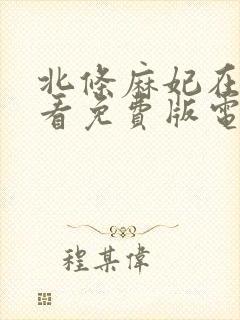 北條麻妃在
看免費版電
程某偉